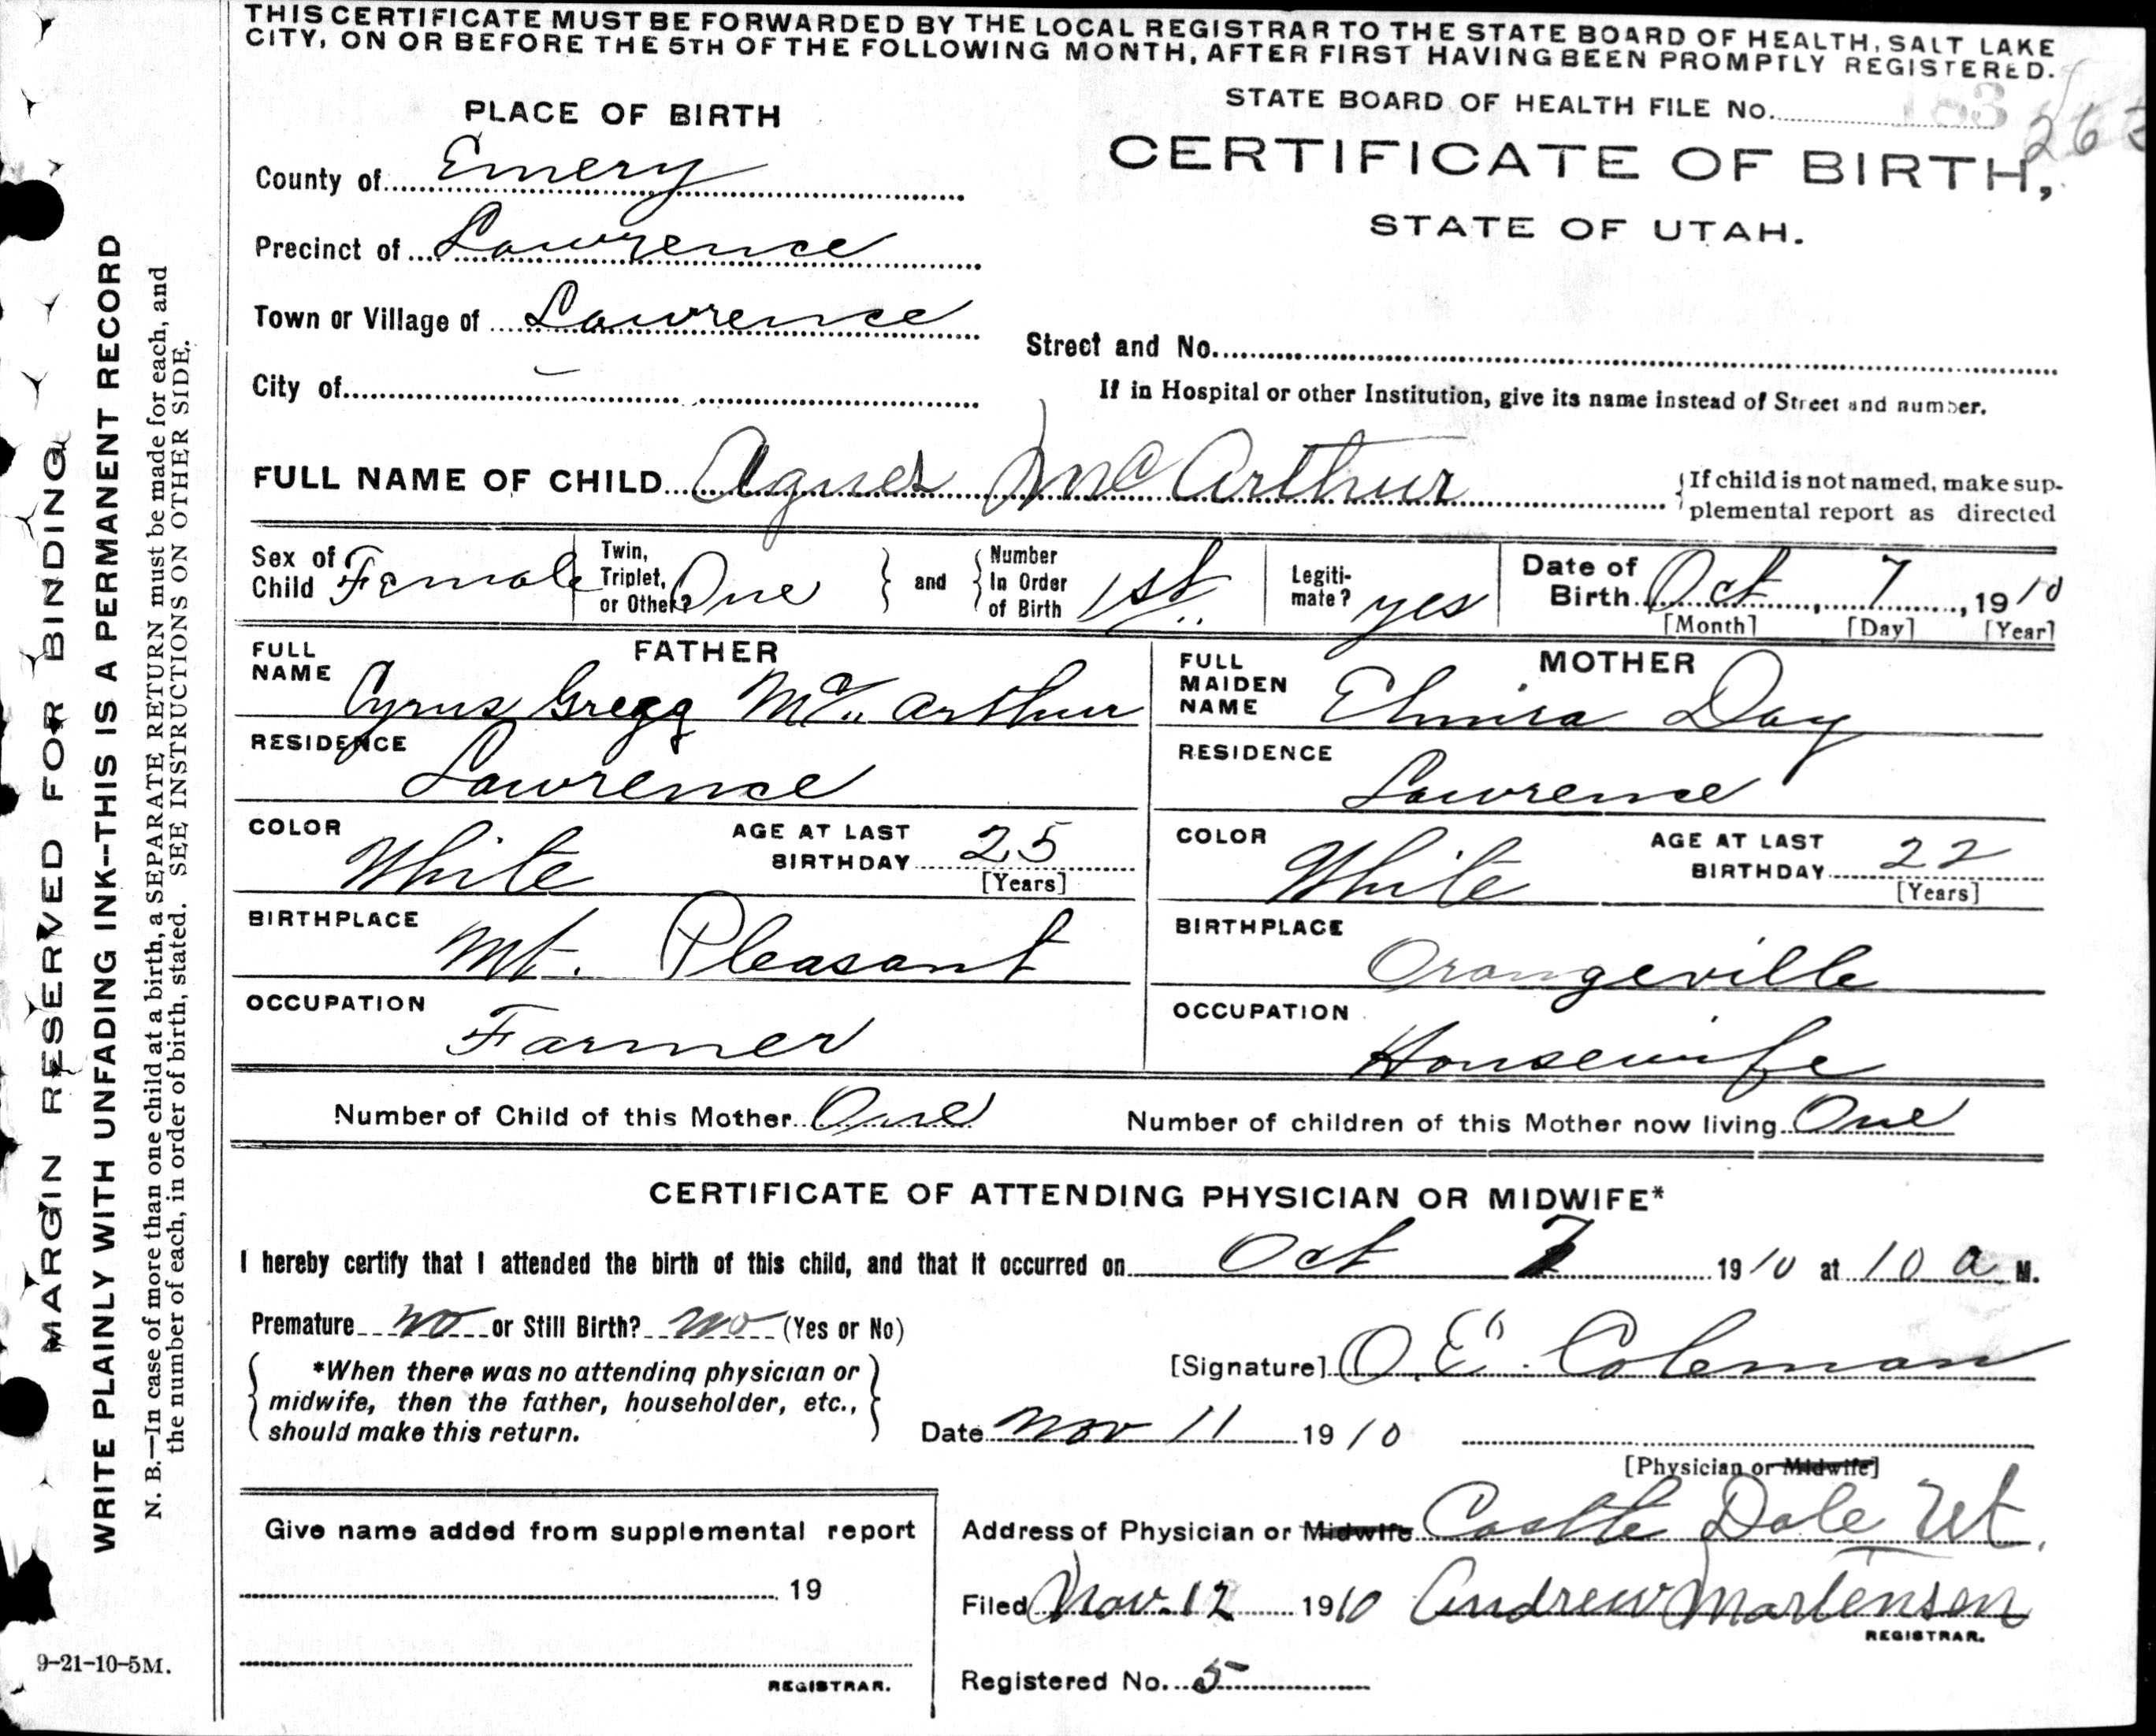 THIS CERTIFICATE MUST BE FORWARDED BY THE LOCAL REGISTRAR TO THE STATE BOARD OF HEALTH, SALT LAKE
CITY, ON OR BEFORE THE 5TH OF THE FOLLOWING MONTH, AFTER FIRST HAVING BEEN PROMPTLY REGISTERED.
STATE BOARD OF HEALTH FILE No.
CERTIFICATE OF BIRTH,
STATE OF UTAH.
PLACE OF BIRTH
County of Emery
Precinct of Lawrence
Town or Village of Lawrence
City of
Street and No.
If in Hospital or other Institution, give its name instead of Street and number.
FULL NAME OF CHILD Agnes McArthur
If child is not named, make sup-
plemental report as directed
Sex of Child Female
Twin, Triplet, or Other? One
and
Number In Order of Birth 1st
Legiti-mate? yes
Date of Birth Oct, 7, 1910
[Month] [Day] [Year]
FATHER
FULL NAME Cyrus Gregg McArthur
RESIDENCE Lawrence
COLOR White AGE AT LAST BIRTHDAY 25
[Years]
BIRTHPLACE Mt. Pleasant
OCCUPATION Farmer
MOTHER
FULL MAIDEN NAME Elmira Day
RESIDENCE Lawrence
COLOR White AGE AT LAST BIRTHDAY 22
[Years]
BIRTHPLACE Orangeville
OCCUPATION Housewife
Number of Child of this Mother One Number of children of this Mother now living One
CERTIFICATE OF ATTENDING PHYSICIAN OR MIDWIFE*
I hereby certify that I attended the birth of this child, and that it occurred on Oct 7 1910 at 10 a M.
Premature no or Still Birth? no (Yes or No)
*When there was no attending physician or
midwife, then the father, householder, etc.,
should make this return.
[Signature] O. E. Coleman
Date Nov 11 1910
[Physician or Midwife]
Address of Physician or Midwife Castle Dale Ut.
Filed Nov. 12 1910 Andrew Martensen
REGISTRAR.
Registered No. 5
Give name added from supplemental report
19
REGISTRAR.
MARGIN RESERVED FOR BINDING
WRITE PLAINLY WITH UNFADING INK--THIS IS A PERMANENT RECORD
N. B.—In case of more than one child at a birth, a SEPARATE RETURN must be made for each, and
the number of each, in order of birth, stated. SEE INSTRUCTIONS ON OTHER SIDE.
9-21-10-5M.